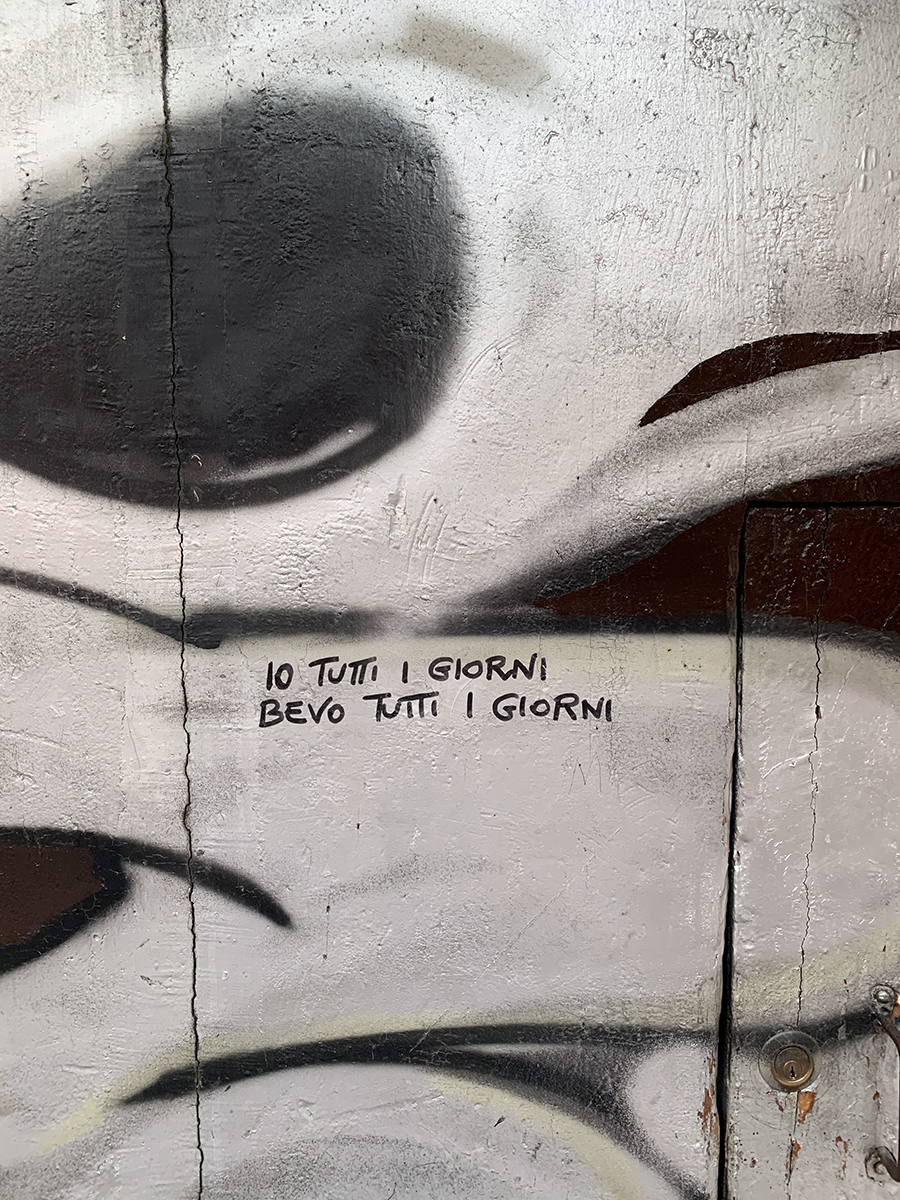 IO TUTTI I GIORNI
BEVO TUTTI I GIORNI